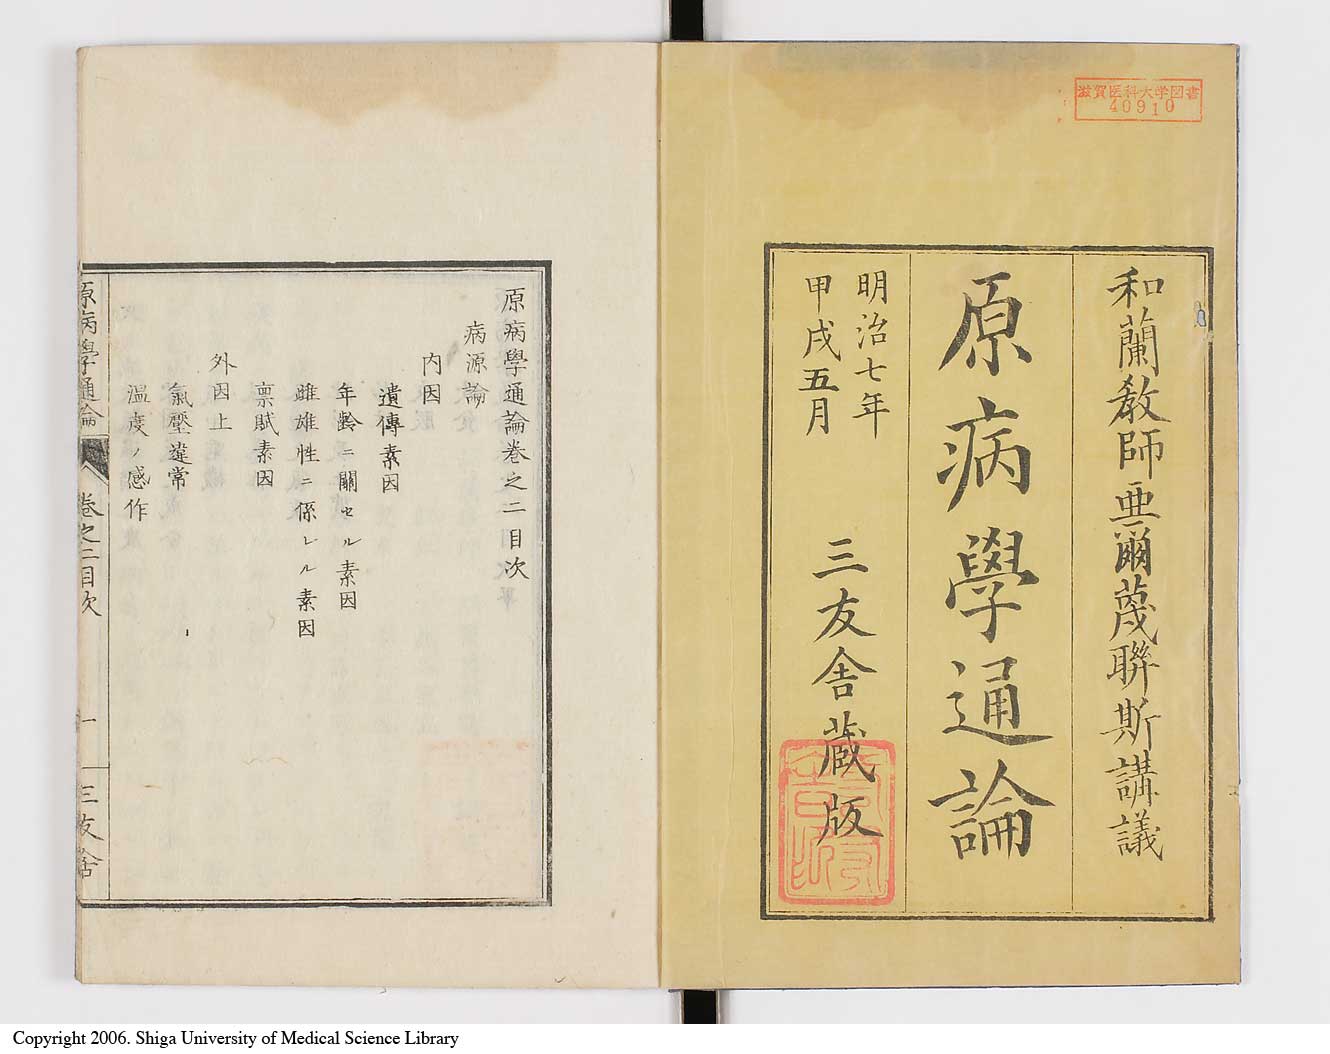 滋賀医科大学図書
40910
和蘭教師亜爾蔑聯斯講議
原病學通論
明治七年
甲戌五月
三友舎蔵版
原病學通論巻之二目次
病源論
内因
遺傳素因
年齡ニ關セル素因
雌雄性ニ係レル素因
禀賦素因
外因上
氣壓違常
温度ノ感作
原病學通論
巻之二目次
一
三友舎
Copyright 2006. Shiga University of Medical Science Library